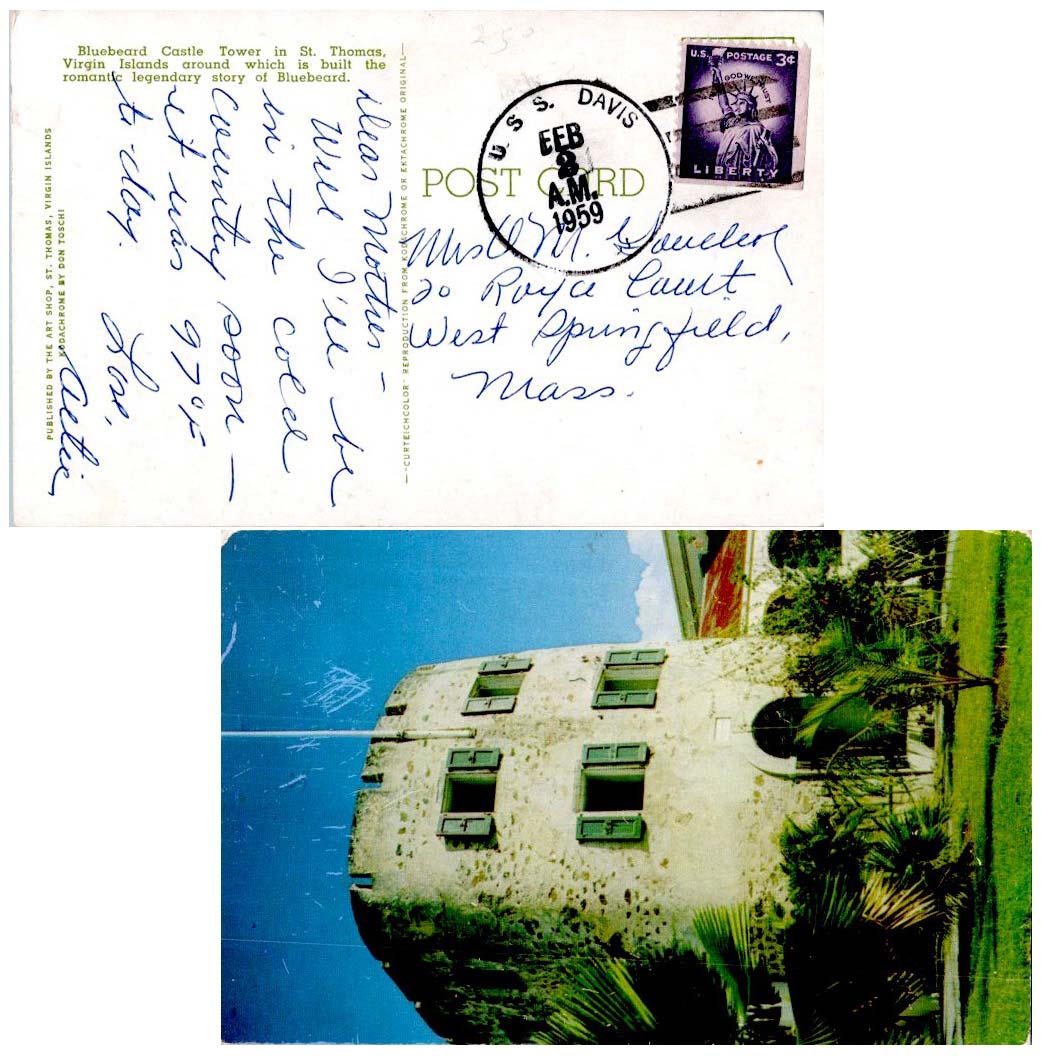 Bluebeard Castle Tower in St. Thomas,
Virgin Islands around which is built the
romantic legendary story of Bluebeard.
PUBLISHED BY THE ART SHOP, ST. THOMAS, VIRGIN ISLANDS
KODACHROME BY DON TOSCHI
Dear Mother –
Well I'll be
in the cold
country soon —
it was 97°F
to-day.
Love,
"CURTEICHCOLOR" REPRODUCTION FROM KODACHROME OR EKTACHROME ORIGINAL
250
POST CARD
U.S.S. DAVIS
FEB
3
A.M.
1959
U.S. POSTAGE 3¢
IN GOD WE TRUST
LIBERTY
Mrs M.
20 Royce Court
West Springfield,
Mass.